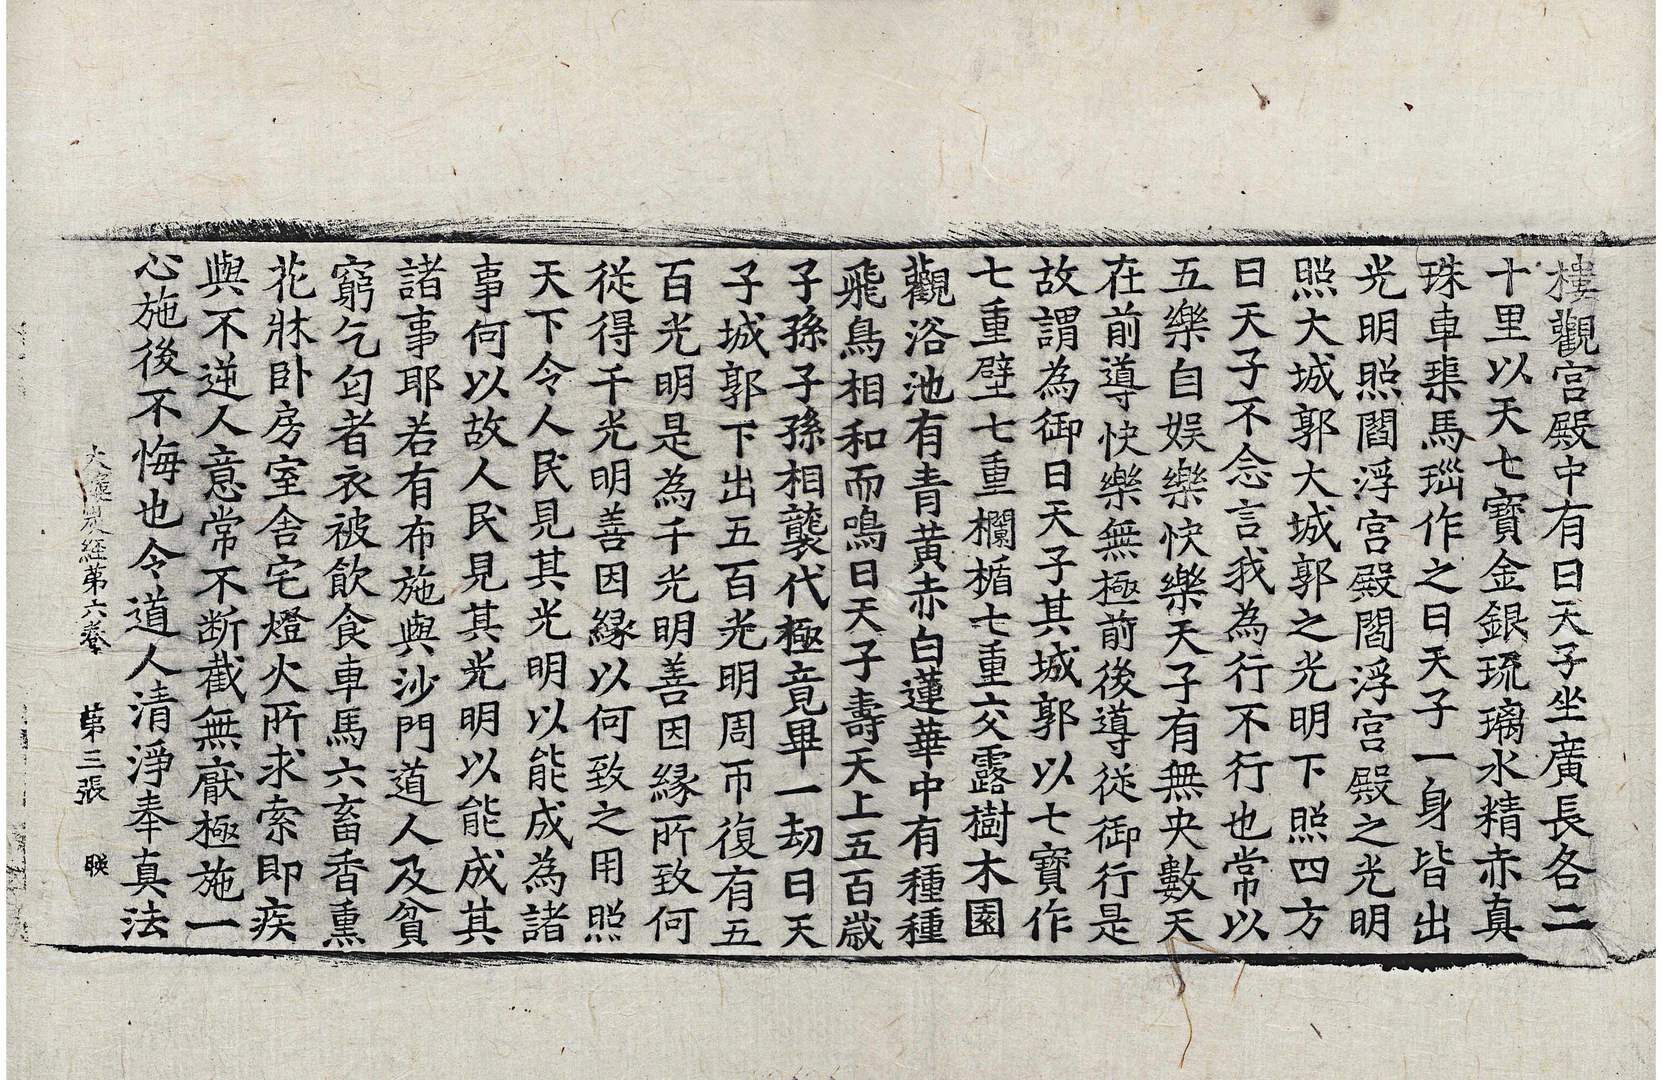 樓觀宮殿中有日天子坐廣長各二
十里以天七寶金銀琉璃水精赤真
珠車𤦲馬瑙作之日天子一身皆出
光明照閻浮宮殿閻浮宮殿之光明
照大城郭大城郭之光明下照四方
日天子不念言我為行不行也常以
五樂自娛樂快樂天子有無央數天
在前導快樂無極前後導從御行是
故謂為御日天子其城郭以七寶作
七重壁七重欄楯七重交露樹木園
觀浴池有青黃赤白蓮華中有種種
飛鳥相和而鳴日天子壽天上五百歲
子孫子孫相襲代極竟畢一劫日天
子城郭下出五百光明周帀復有五
百光明是為千光明善因緣所致何
從得千光明善因緣以何致之用照
天下令人民見其光明以能成為諸
事何以故人民見其光明以能成其
諸事耶若有布施與沙門道人及貧
窮乞匄者衣被飲食車馬六畜香熏
花牀臥房室舍宅燈火所求索即疾
與不逆人意常不斷截無厭極施一
心施後不悔也令道人清淨奉真法
大樓炭經第六卷 第三張